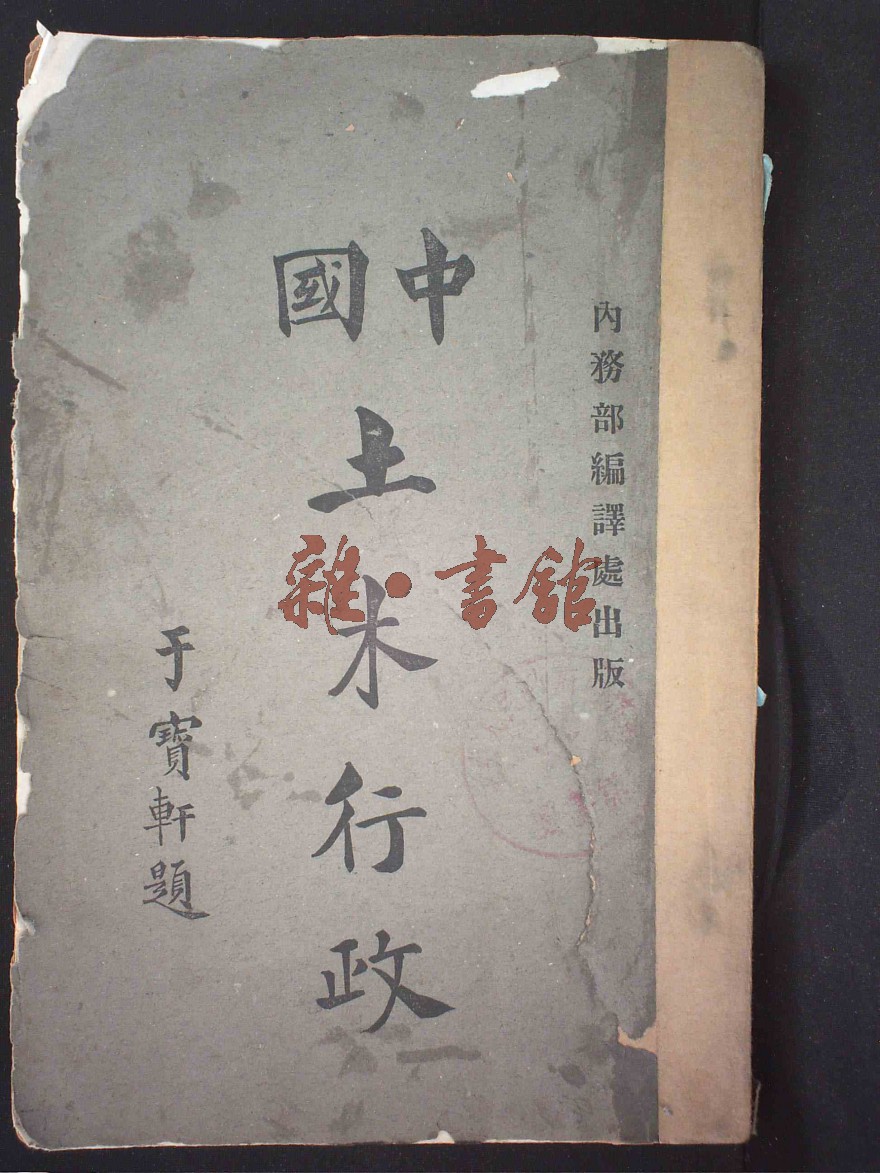 內務部編譯處出版
中國
土木行政
于寶軒題
雜·書館